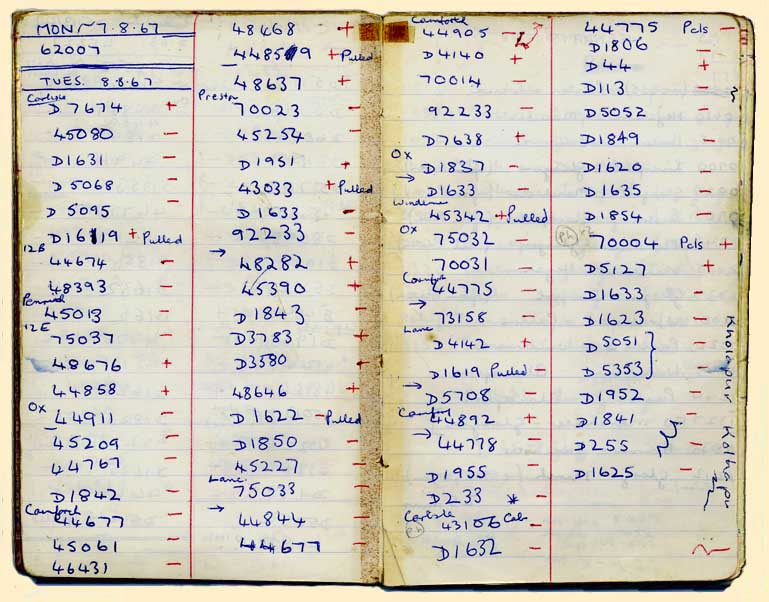 MON ~ 7.8.67
62007
TUES. 8.8.67
Carlisle
D7674 +
45080 -
D1631 -
D5068 -
D5095 -
D1619 + Pulled
12B
44674 -
48393 -
Penrith
45013 -
12E
75037 -
48676 +
44858 +
Ox
44911 -
45209 -
44767 -
D1842 -
Carnforth
44677 -
45061 -
46431 -
48468 +
44859 + Pulled
48637 +
Preston
70023 -
45254 -
D1951 +
43033 + Pulled
D1633 -
92233 -
→ 48282 +
45390 +
D1843 -
D3783 +
D3580 -
48646 +
D1622 - Pulled
D1850 -
45227 -
Lanc.
75033 -
→ 44844 -
44677 -
Carnforth
44905 -
D4140 +
70014 -
92233 -
D7638 +
Ox
D1837 -
→ D1633 -
Windermere
45342 + Pulled
Ox
75032 -
70031 -
Carnforth
44775 -
→ 73158 -
Lanc
D4142 +
D1619 Pulled -
→ D5708 -
Carnforth
44892 +
→ 44778 -
D1955 -
D233 * -
Carlisle
43106 Cab -
D1632 -
44775 Pcls -
D1806 -
D44 +
D113 -
D5052 -
D1849 -
D1620 -
D1635 -
D1854 -
70004 Pcls +
D5127 +
D1633 -
D1623 -
D5051 }
D5353
D1952 -
D1841 -
D255 -
D1625 -
Kholapur Kolhapur